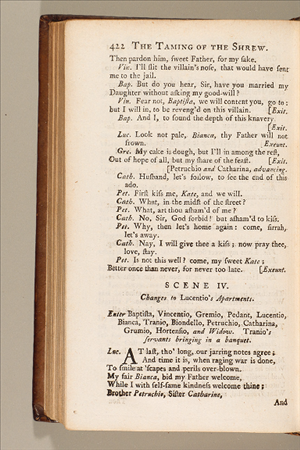 422 THE TAMING OF THE SHREW.
Then pardon him, ſweet Father, for my ſake.
Vin. I'll ſlit the villain's noſe, that would have ſent
me to the jail.
Bap. But do you hear, Sir, have you married my
Daughter without aſking my good-will?
Vin. Fear not, Baptiſta, we will content you, go to:
but I will in, to be reveng'd on this villain. [Exit.
Bap. And I, to ſound the depth of this knavery.
[Exit.
Luc. Look not pale, Bianca, thy Father will not
frown. [Exeunt.
Gre. My cake is dough, but I'll in among the reſt,
Out of hope of all, but my ſhare of the feaſt. [Exit.
[Petruchio and Catharina, advancing.
Cath. Huſband, let's follow, to ſee the end of this
ado.
Pet. Firſt kiſs me, Kate, and we will.
Cath. What, in the midſt of the ſtreet?
Pet. What, art thou aſham'd of me?
Cath. No, Sir, God forbid! but aſham'd to kiſs.
Pet. Why, then let's home again: come, ſirrah,
let's away.
Cath. Nay, I will give thee a kiſs; now pray thee,
love, ſtay.
Pet. Is not this well? come, my ſweet Kate;
Better once than never, for never too late. [Exeunt.
SCENE IV.
Changes to Lucentio's Apartments.
Enter Baptiſta, Vincentio, Gremio, Pedant, Lucentio,
Bianca, Tranio, Biondello, Petruchio, Catharina,
Grumio, Hortenſio, and Widow. Tranio's
ſervants bringing in a banquet.
Luc. AT laſt, tho' long, our jarring notes agree;
And time it is, when raging war is done,
To ſmile at 'ſcapes and perils over-blown.
My fair Bianca, bid my Father welcome,
While I with ſelf-ſame kindneſs welcome thine;
Brother Petruchio, Siſter Catharina,
And